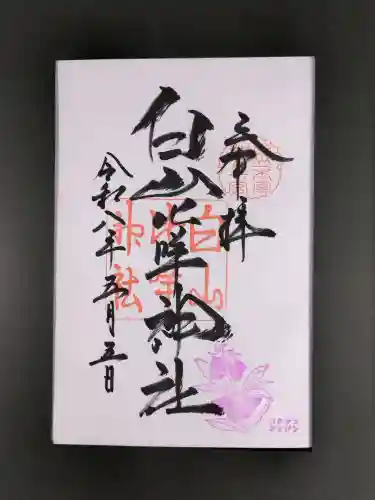 奉拝
白山比咩神社
令和八年五月五日
白山
比咩
神社